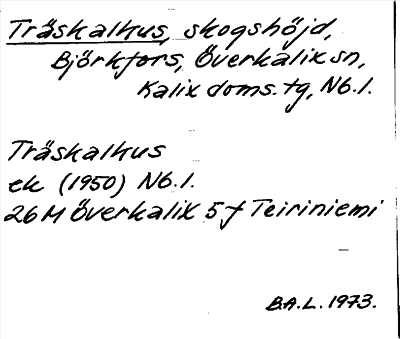 Träskalhus, skogshöjd,
Björkfors, Överkalix sn,
Kalix doms. tg, Nb. l.
Träskalhus
ek (1950) Nb. l.
26 M Överkalix 5 f Teiriniemi
B.A.L. 1973.